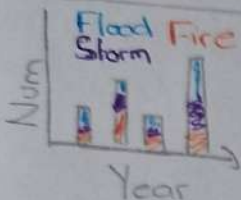 Flood Fire
Storm
Num
Year